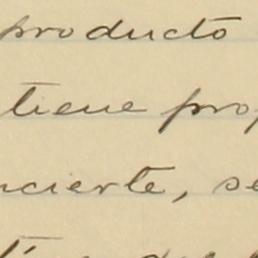 producto
tiene prop
ncierte, se